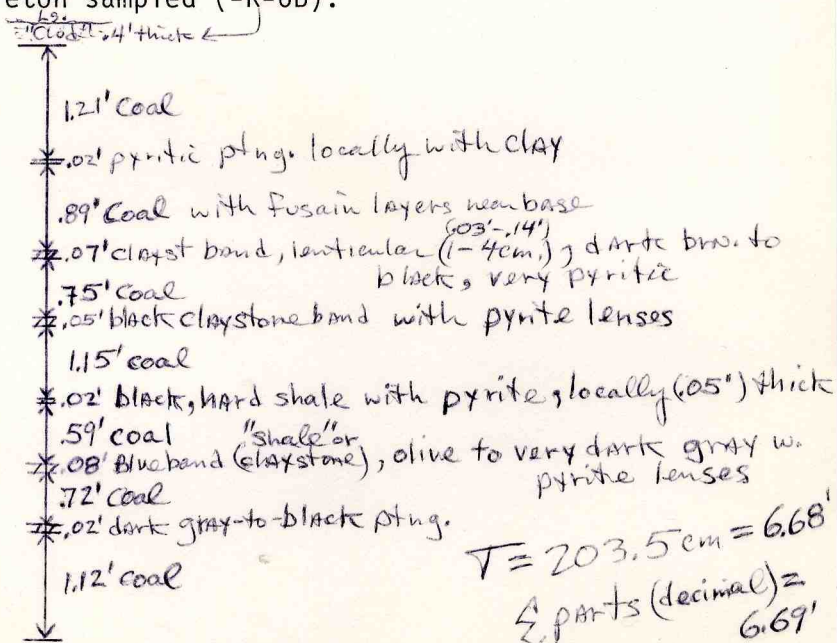 eton sampled (-R-OB).
Lg.
"Clod" .4' thick
1.21' Coal
.02' pyritic ptng. locally with clay
.89' Coal with fusain layers near base
(.03'-.14')
.07' clayst band, lenticular (1-4cm.), dark brn. to
black, very pyritic
.75' Coal
.05' black claystone band with pyrite lenses
1.15' coal
.02' black, hard shale with pyrite, locally (.05') thick
.59' coal "shale" or
.08' Blueband (claystone), olive to very dark gray w.
pyrite lenses
.72' Coal
.02' dark gray-to-black ptng.
1.12' coal
T = 203.5 cm = 6.68'
Σ parts (decimal) =
6.69'